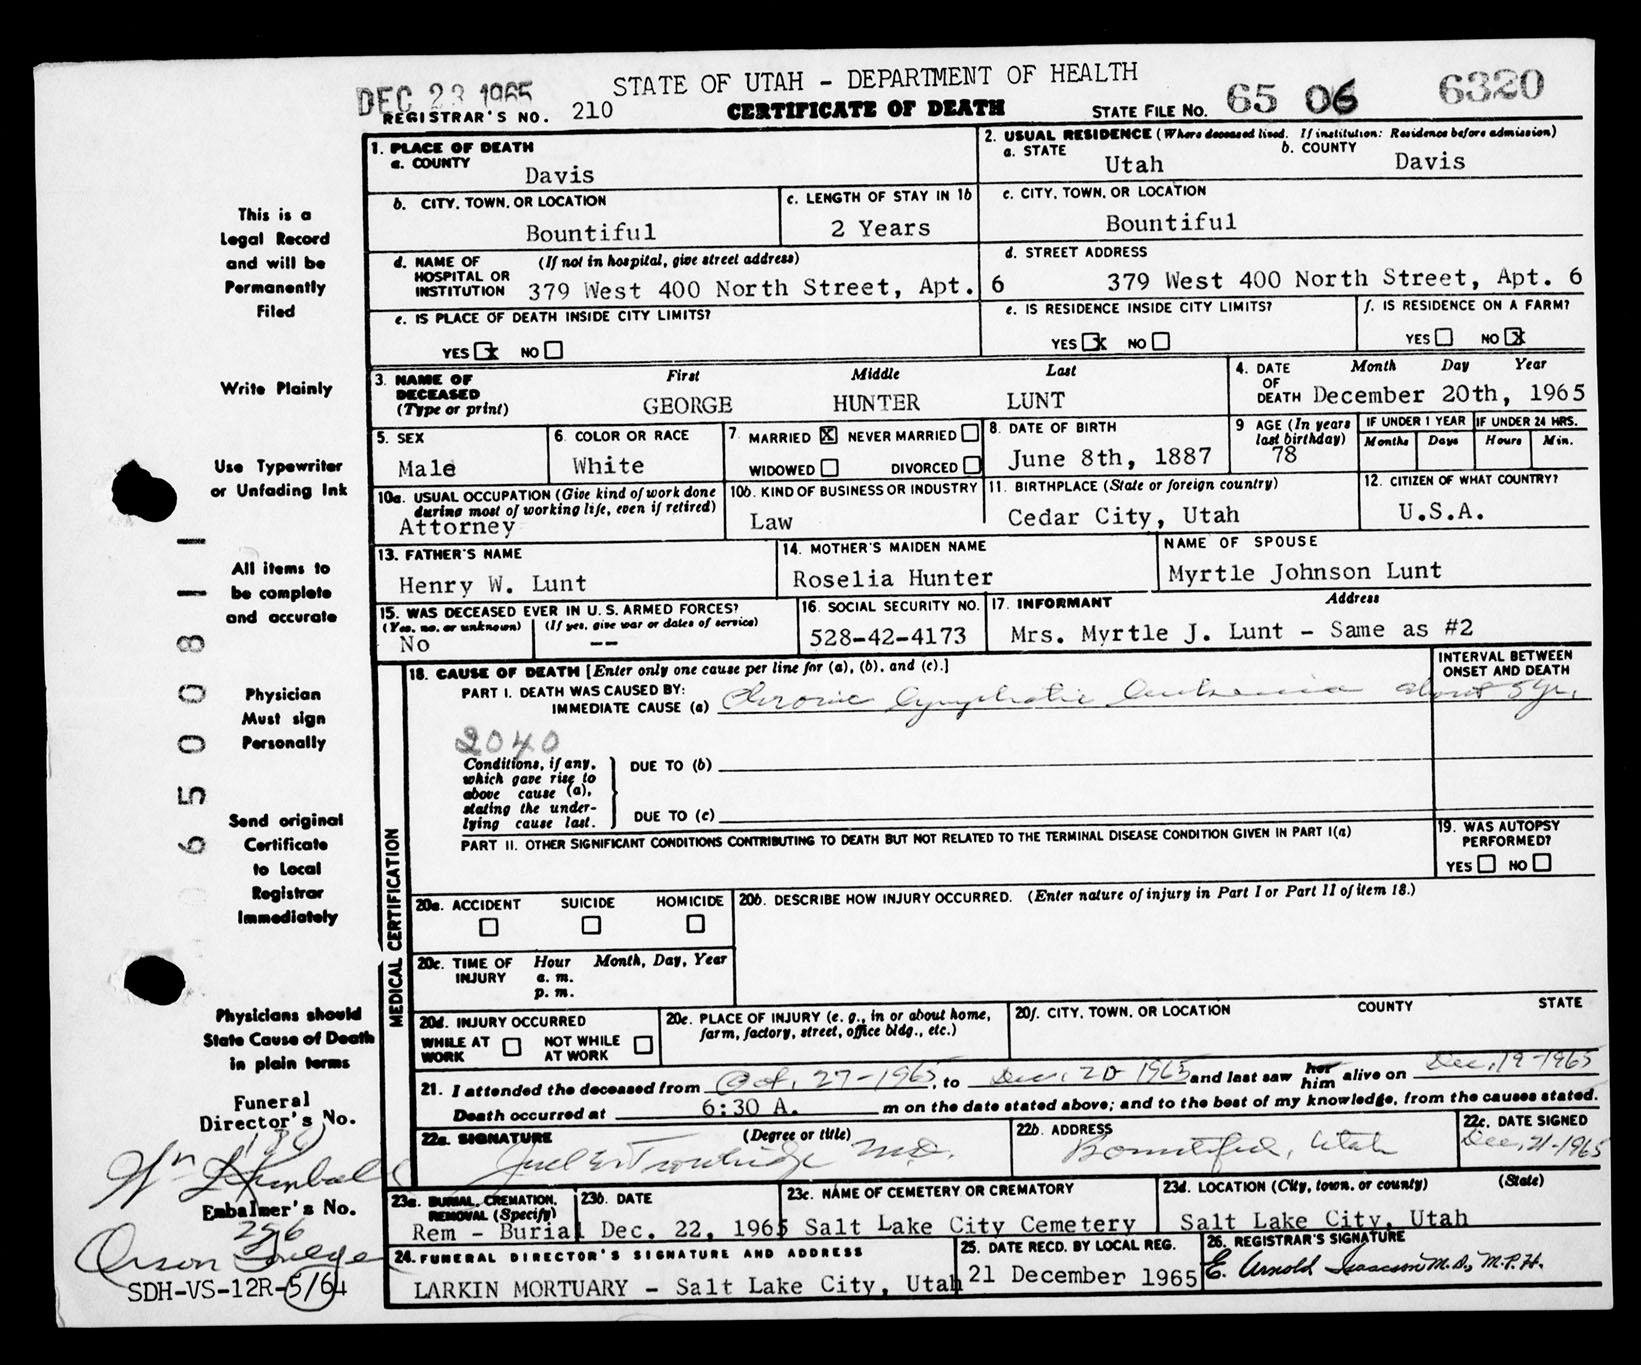 STATE OF UTAH – DEPARTMENT OF HEALTH
DEC 23 1965
REGISTRAR'S NO. 210
CERTIFICATE OF DEATH
STATE FILE NO. 65 06 6320
1. PLACE OF DEATH
a. COUNTY
Davis
2. USUAL RESIDENCE (Where deceased lived. If institution: Residence before admission)
a. STATE Utah
b. COUNTY Davis
b. CITY, TOWN, OR LOCATION
Bountiful
c. LENGTH OF STAY IN 1b
2 Years
c. CITY, TOWN, OR LOCATION
Bountiful
d. NAME OF HOSPITAL OR INSTITUTION (If not in hospital, give street address)
379 West 400 North Street, Apt. 6
d. STREET ADDRESS
379 West 400 North Street, Apt. 6
e. IS PLACE OF DEATH INSIDE CITY LIMITS?
YES X NO
e. IS RESIDENCE INSIDE CITY LIMITS?
YES X NO
f. IS RESIDENCE ON A FARM?
YES NO X
3. NAME OF DECEASED (Type or print)
First Middle Last
GEORGE HUNTER LUNT
4. DATE OF DEATH
Month Day Year
December 20th, 1965
5. SEX
Male
6. COLOR OR RACE
White
7. MARRIED X NEVER MARRIED
WIDOWED DIVORCED
8. DATE OF BIRTH
June 8th, 1887
9 AGE (In years last birthday)
78
IF UNDER 1 YEAR
Months Days
IF UNDER 24 HRS.
Hours Min.
10a. USUAL OCCUPATION (Give kind of work done during most of working life, even if retired)
Attorney
10b. KIND OF BUSINESS OR INDUSTRY
Law
11. BIRTHPLACE (State or foreign country)
Cedar City, Utah
12. CITIZEN OF WHAT COUNTRY?
U.S.A.
13. FATHER'S NAME
Henry W. Lunt
14. MOTHER'S MAIDEN NAME
Roselia Hunter
NAME OF SPOUSE
Myrtle Johnson Lunt
15. WAS DECEASED EVER IN U. S. ARMED FORCES?
(Yes, no, or unknown) (If yes, give war or dates of service)
No --
16. SOCIAL SECURITY NO.
528-42-4173
17. INFORMANT Address
Mrs. Myrtle J. Lunt – Same as #2
MEDICAL CERTIFICATION
18. CAUSE OF DEATH [Enter only one cause per line for (a), (b), and (c).]
INTERVAL BETWEEN ONSET AND DEATH
PART I. DEATH WAS CAUSED BY:
IMMEDIATE CAUSE (a) Chronic lymphatic leukemia about 5 yr.
2040
Conditions, if any, which gave rise to above cause (a), stating the underlying cause last.
DUE TO (b)
DUE TO (c)
PART II. OTHER SIGNIFICANT CONDITIONS CONTRIBUTING TO DEATH BUT NOT RELATED TO THE TERMINAL DISEASE CONDITION GIVEN IN PART I(a)
19. WAS AUTOPSY PERFORMED?
YES NO
20a. ACCIDENT SUICIDE HOMICIDE
20b. DESCRIBE HOW INJURY OCCURRED. (Enter nature of injury in Part I or Part II of item 18.)
20c. TIME OF INJURY
Hour Month, Day, Year
a. m.
p. m.
20d. INJURY OCCURRED
WHILE AT WORK NOT WHILE AT WORK
20e. PLACE OF INJURY (e. g., in or about home, farm, factory, street, office bldg., etc.)
20f. CITY, TOWN, OR LOCATION COUNTY STATE
21. I attended the deceased from Oct. 27-1965, to Dec. 20 1965 and last saw her him alive on Dec. 19-1965
Death occurred at 6:30 A. m on the date stated above; and to the best of my knowledge, from the causes stated.
22a. SIGNATURE (Degree or title)
M.D.
22b. ADDRESS
Bountiful, Utah
22c. DATE SIGNED
Dec. 21-1965
23a. BURIAL, CREMATION, REMOVAL (Specify)
Rem – Burial
23b. DATE
Dec. 22, 1965
23c. NAME OF CEMETERY OR CREMATORY
Salt Lake City Cemetery
23d. LOCATION (City, town, or county) (State)
Salt Lake City, Utah
24. FUNERAL DIRECTOR'S SIGNATURE AND ADDRESS
LARKIN MORTUARY – Salt Lake City, Utah
25. DATE RECD. BY LOCAL REG.
21 December 1965
26. REGISTRAR'S SIGNATURE
E. Arnold Isaacson M.D., M.P.H.
This is a
Legal Record
and will be
Permanently
Filed
Write Plainly
Use Typewriter
or Unfading Ink
All items to
be complete
and accurate
Physician
Must sign
Personally
Send original
Certificate
to Local
Registrar
Immediately
Physicians should
State Cause of Death
in plain terms
Funeral
Director's No.
Wm Kimball
Embalmer's No.
296
Orson
SDH-VS-12R-5/64